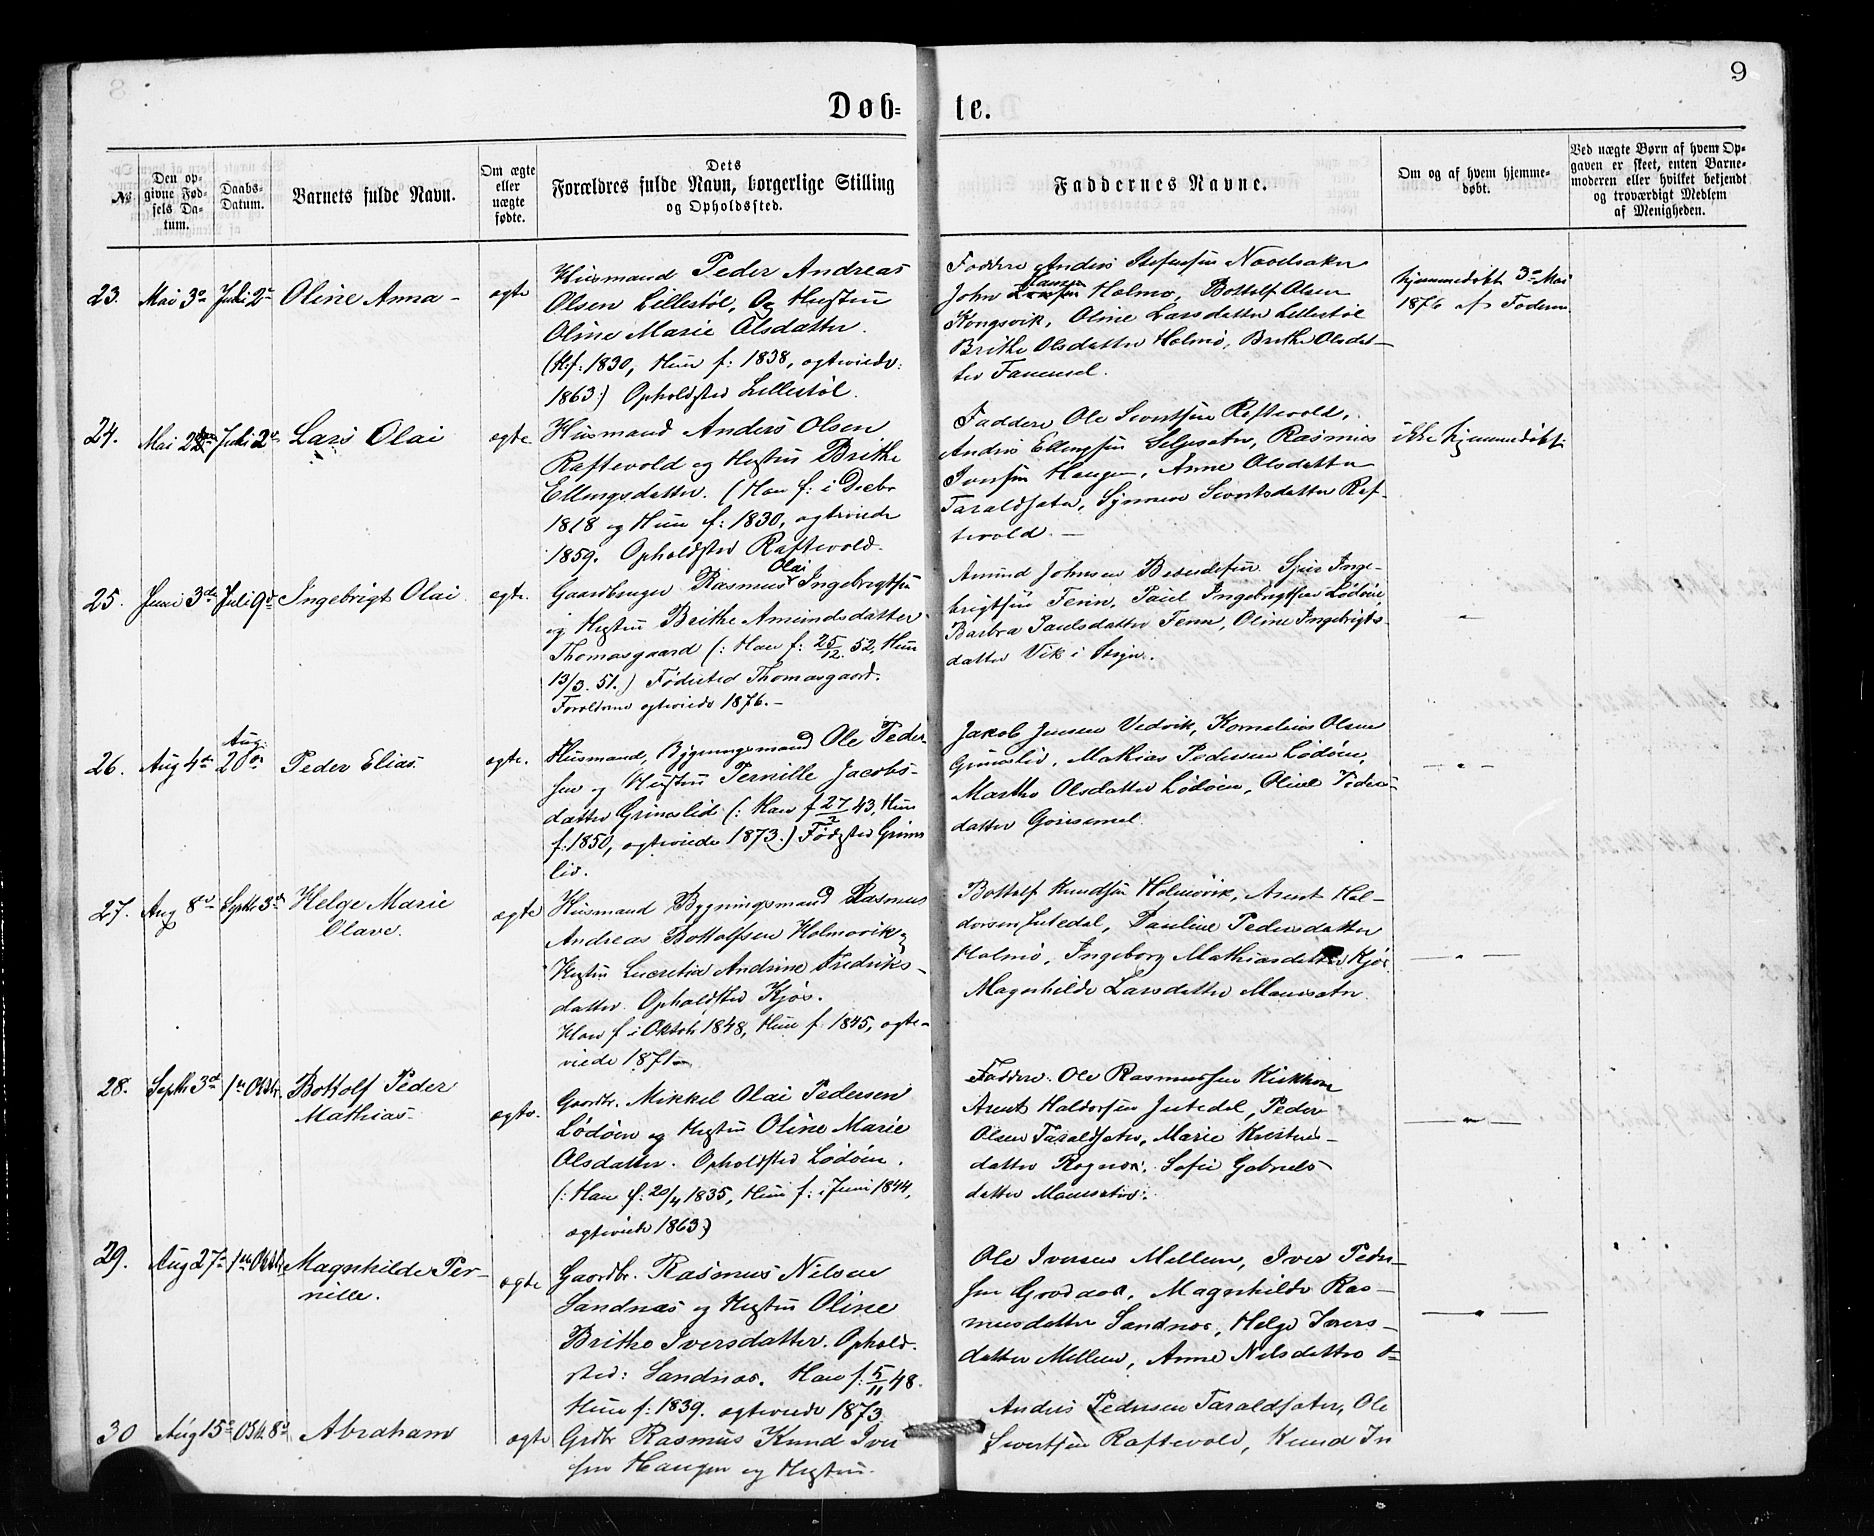 9
Døb= te.
№
Den op-
givne Fød-
sels Da-
tum.
Daabs-
Datum.
Barnets fulde Navn.
Om ægte
eller
uægte
fødte.
Dets
Forældres fulde Navn, borgerlige Stilling
og Opholdssted.
Faddernes Navne.
Om og af hvem hjemme-
døbt.
Ved uægte Børn af hvem Op-
gaven er skeet, enten Barne-
moderen eller hvilket bekjendt
og troværdigt Medlem
af Menigheden.
23. Mai 3die Juli 2den Oline Anna - ægte
Husmand Peder Andreas
Olsen Lillestøl, Og Hustru
Oline Marie Olsdatter.
(H. f: 1830, Hun f: 1838, ægteviede:
1863:) Opholdsted Lillestøl.
Faddere Anders
John Hansen Holmø, Bottolf Olsen
Kongsvik, Oline Larsdatter Lillestøl
Brithe Olsdatter Holmø, Brithe Olsdat-
ter
hjemmedøbt 3die Mai
1876 af Faderen
24. Mai Juli 2den Lars Olai ægte.
Husmand Anders Olsen
Raftevold og Hustru Brithe
Ellingsdatter. (Han f: i Decbr
1818 og Hun f: 1830, ægteviede
1859. Opholdsted Raftevold.
Faddere Ole Sivertsen Raftevold,
Anders Ellingsen Seljesæter, Rasmus
Iversen Haugen, Anne Olsdatter
Taraldsæter, Synneve Sivertsdatter Raf-
tevold. -
ikke hjemmedøbt
25. Juni 3die Juli 9de Ingebrigt Olai ægte.
Gaardbruger Rasmus Olai Ingebrigtsen
og Hustru Brithe Amundsdatter
Thomasgaard (: Han f: 25/12 52, Hun
13/3. 51.) Fødested Thomasgaard.
Forældrene ægteviede 1876. -
Amund Johnsen Inge-
brigtsen Paul Ingebrigtsen Lødøen,
Barbra Paulsdatter Oline Ingebrigts-
datter Vik i
- " -
26. Aug 4de Aug: 20de Peder Elias ægte.
Husmand, Bygningsmand Ole Peder
sen og Hustru Pernille Jacobs-
datter Grimslid (: Han f 27/2 43, Hun
f: 1850, ægteviede 1873.) Fødested Grims
lid.
Jakob Jensen Vedvik, Kornelius Olsen
Grimslid, Mathias Pedersen Lødøen,
Marthe Olsdatter Lødøen, Oline Peders-
datter
- " -
27. Aug 8de Septbr 3die Helge Marie
Olave. ægte
Husmand Bygningsmand Rasmus
Andreas Bottolfsen Holmøvik og
Hustru Lucretia Andrine Fredriks-
datter. Opholdsted Kjøs.
Han f i Oktob 1848, Hun f. 1845, ægte-
viede 1871 -
Bottolf Knudsen Holmøvik, Arent Hal-
dorsen Jutedal, Pauline Pedersdatter
Holmø, Ingeborg Mathiasdatter Kjøs
Magnhilde Larsdatter Maurset
- " -
28. Septbr 3die 1ste Oktbr. Bottolf Peder
Mathias. ægte.
Gaardbr. Mikkel Olai Pedersen
Lødøen og Hustru Oline Marie
Olsdatter. Opholdsted Lødøen.
(: Han f: 20/4 1835, Hun f: i Juni 1844,
ægteviede 1863.)
Faddere: Ole Rasmussen
Arent Haldorsen Jutedal, Peder
Olsen Taraldsæter, Marie
datter Sofie Gabriels-
datter
- " -
29. Aug 27de 1ste Oktbr Magnhilde Per-
nille. ægte
Gaardbr. Rasmus Nilsen
Sandnæs og Hustru Oline
Brithe Iversdatter. Ophold-
sted: Sandnæs. Han f: 5/11 48.
Hun f: 1839. ægteviede 1873.
Ole Iversen Mellem, Iver Peder-
sen Magnhilde Ras-
musdatter Sandnæs, Helge Ivers-
datter Mellem, Anne Nilsdatter
- " -
30 Aug 15de Oktb. 8de Abraham ægte
Grdbr Rasmus Knud Iver
sen Haugen og Hustru.
Anders Pedersen Taraldsæter, Ole
Sivertsen Raftevold, Knud